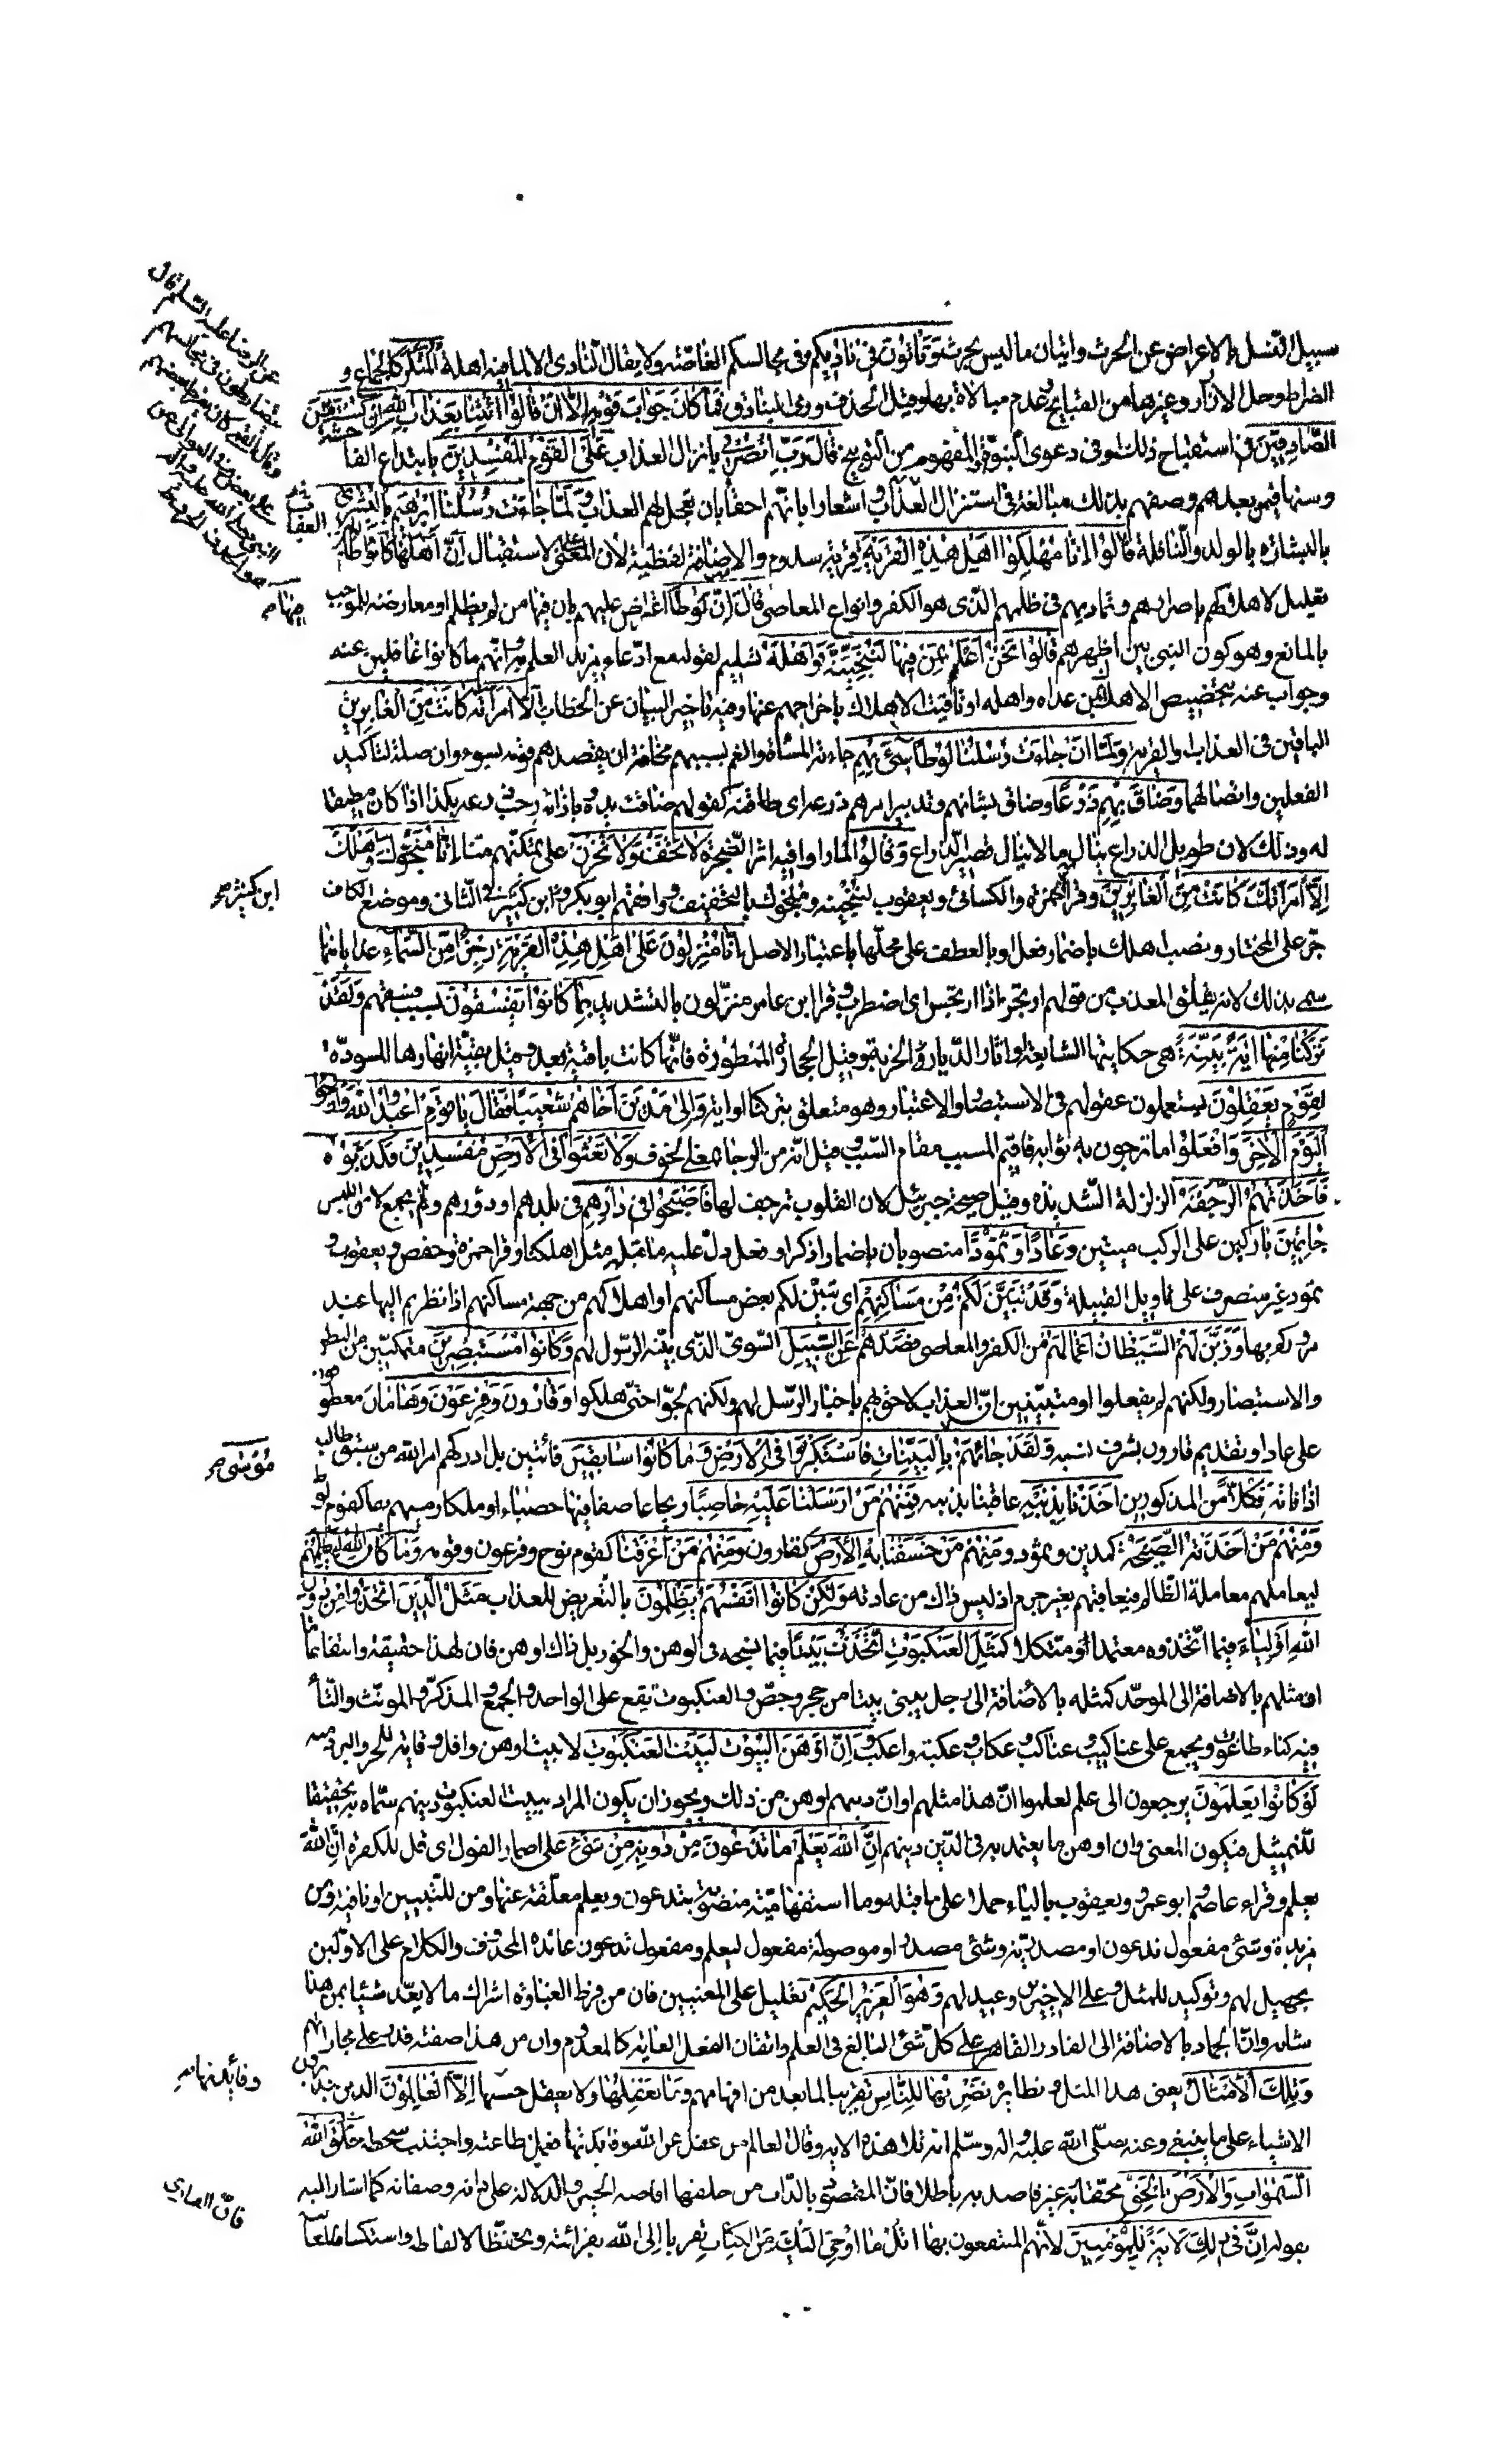 سبيل النسل بالاعراض عن الحرث واتيان ما ليس بحرث وَتَأْتُونَ فِي نَادِيكُمُ فى مجالسكم الغاصّة ولا يقال النادى الا لما فيه اهله الْمُنْكَرَ كالجماع و
الضراط وحل الازار وغيرها من القبايح عدم مبالاة بها وقيل الخذف ورمى البنادق فَمَا كَانَ جَوَابَ قَوْمِهِ إِلَّا أَنْ قَالُوا ائْتِنَا بِعَذَابِ اللَّهِ إِنْ كُنْتَ مِنَ
الصَّادِقِينَ فى استقباح ذلك او فى دعوى النبوّة المفهوم من التوبيخ قَالَ رَبِّ انْصُرْنِي بانزال العذاب عَلَى الْقَوْمِ الْمُفْسِدِينَ بابتداع الفاحشة
وسنها فيمن بعدهم وصفهم بذلك مبالغة فى استنزال العذاب واشعارا بانّهم احقا بان يعجل لهم العذاب وَلَمَّا جَاءَتْ رُسُلُنَا إِبْرَاهِيمَ بِالْبُشْرَى
بالبشارة بالولد والنافلة قَالُوا إِنَّا مُهْلِكُوا أَهْلِ هَذِهِ الْقَرْيَةِ قرية سدوم والاضافة لفظية لان المعنى على الاستقبال إِنَّ أَهْلَهَا كَانُوا ظَالِمِينَ
تعليل لاهلاكهم باصرارهم وتماديهم فى ظلمهم الّذى هو الكفر وانواع المعاصى قَالَ إِنَّ فِيهَا لُوطًا اعتراض عليهم بان فيها من لم يظلم او معارضة للموجب
بالمانع وهو كون النبى بين اظهرهم قَالُوا نَحْنُ أَعْلَمُ بِمَنْ فِيهَا لَنُنَجِّيَنَّهُ وَأَهْلَهُ تسليم لقوله مع ادّعاء مزيد العلم به وانّهم ما كانوا غافلين عنه
وجواب عنه بتخصيص الاهل بمن عداه واهله او تاقيت الاهلاك باخراجهم عنها وفيه تاخير البيان عن الخطاب إِلَّا امْرَأَتَهُ كَانَتْ مِنَ الْغَابِرِينَ
الباقين فى العذاب او القرية وَلَمَّا أَنْ جَاءَتْ رُسُلُنَا لُوطًا سِيءَ بِهِمْ جاءته المساة والغم بسببهم مخافة ان يقصدهم قومه بسوء وان صلة لتاكيد
الفعلين واتصالهما وَضَاقَ بِهِمْ ذَرْعًا وضاق بشانهم وتدبير امرهم ذرعه اى طاقته كقولهم ضاقت يده وبازائه رحب ذرعه بكذا اذا كان مطيقا
له وذلك لان طويل الذراع ينال ما لا ينال قصير الذراع وَقَالُوا لما راوا فيه اثر الضجرة لَا تَخَفْ وَلَا تَحْزَنْ على تمكنهم منّا إِنَّا مُنَجُّوكَ وَأَهْلَكَ
إِلَّا امْرَأَتَكَ كَانَتْ مِنَ الْغَابِرِينَ وقرا حمزة والكسائى ويعقوب لننجينه ومنجوك بالتخفيف ووافقهم ابو بكر وابن كثير فى الثانى وموضع الكاف
ابن كثير صح
جرّ على المختار ونصب اهلك باضمار فعل او بالعطف على محلّها باعتبار الاصل إِنَّا مُنْزِلُونَ عَلَى أَهْلِ هَذِهِ الْقَرْيَةِ رِجْزًا مِنَ السَّمَاءِ عذابا منها
سمى بذلك لانه يقلق المعذب من قولهم ارتجز اذا ارتجس اى اضطرب وقرا ابن عامر منزّلون بالتشديد بِمَا كَانُوا يَفْسُقُونَ بسبب فسقهم وَلَقَدْ
تَرَكْنَا مِنْهَا آيَةً بَيِّنَةً هى حكايتها الشايعة او اثار الدّيار الخربة وقيل الحجارة الممطورة فانّها كانت باقية بعد وقيل بقيّة انهارها المسودّة
لِقَوْمٍ يَعْقِلُونَ يستعملون عقولهم فى الاستبصار والاعتبار وهو متعلق بتركنا او اية وَإِلَى مَدْيَنَ أَخَاهُمْ شُعَيْبًا فَقَالَ يَا قَوْمِ اعْبُدُوا اللَّهَ وَارْجُوا
الْيَوْمَ الْآخِرَ وافعلوا ما ترجون به ثوابه فاقيم المسبب مقام السّبب وقيل انّه من الرجا بمعنى الخوف وَلَا تَعْثَوْا فِي الْأَرْضِ مُفْسِدِينَ فَكَذَّبُوهُ
فَأَخَذَتْهُمُ الرَّجْفَةُ الزلزلة الشديدة وقيل صيحة جبرئيل لان القلوب ترجف لها فَأَصْبَحُوا فِي دَارِهِمْ فى بلدهم او دورهم ولم يجمع لامن اللبس
جَاثِمِينَ باركين على الركب ميتين وَعَادًا وَثَمُودًا منصوبان باضمار اذكر او فعل دلّ عليه ما قبله مثل اهلكنا وقرا حمزة وحفص ويعقوب و
ثمود غير منصرف على تاويل القبيلة وَقَدْ تَبَيَّنَ لَكُمْ مِنْ مَسَاكِنِهِمْ اى تبيّن لكم بعض مساكنهم او اهلاكهم من جهة مساكنهم اذا نظرتم اليها عند
مروركم بها وَزَيَّنَ لَهُمُ الشَّيْطَانُ أَعْمَالَهُمْ من الكفر والمعاصى فَصَدَّهُمْ عَنِ السَّبِيلِ السّوىّ الّذى بيّنه الرّسول لهم وَكَانُوا مُسْتَبْصِرِينَ متمكنين من النظر
والاستبصار ولكنهم لم يفعلوا او متبيّنين انّ العذاب لاحق بهم باخبار الرّسل لهم ولكنهم لجّوا حتّى هلكوا وَقَارُونَ وَفِرْعَوْنَ وَهَامَانَ معطوفون
على عادا وتقديم قارون لشرف نسبه وَلَقَدْ جَاءَهُمْ بِالْبَيِّنَاتِ فَاسْتَكْبَرُوا فِي الْأَرْضِ وَمَا كَانُوا سَابِقِينَ فائتين بل ادركهم امر الله من سبق طالبه
مُوسَى صح
اذا فاته فَكُلًّا من المذكورين أَخَذْنَا بِذَنْبِهِ عاقبنا بذنبه فَمِنْهُمْ مَنْ أَرْسَلْنَا عَلَيْهِ حَاصِبًا ريحا عاصفا فيها حصباء او ملكا رميهم بها كقوم لوط
وَمِنْهُمْ مَنْ أَخَذَتْهُ الصَّيْحَةُ كمدين وثمود وَمِنْهُمْ مَنْ خَسَفْنَا بِهِ الْأَرْضَ كقارون وَمِنْهُمْ مَنْ أَغْرَقْنَا كقوم نوح وفرعون وقومه وَمَا كَانَ اللَّهُ لِيَظْلِمَهُمْ
ليعاملهم معاملة الظالم فيعاقبهم بغير جرم اذ ليس ذاك من عادته وَلَكِنْ كَانُوا أَنْفُسَهُمْ يَظْلِمُونَ بالتعريض للعذاب مَثَلُ الَّذِينَ اتَّخَذُوا مِنْ دُونِ
اللَّهِ أَوْلِيَاءَ فيما اتّخذوه معتمدا ومتّكلا كَمَثَلِ الْعَنْكَبُوتِ اتَّخَذَتْ بَيْتًا فيما نسجه فى الوهن والخور بل ذاك اوهن فان لهذا حقيقة وانتفاعا ما
او مثلهم بالاضافة الى الموحّد كمثله بالاضافة الى رجل يبنى بيتا من حجر وجصّ والعنكبوت يقع على الواحد والجمع والمذكّر والمونّث والتّاء
فيه كتاء طاغوت ويجمع على عناكيب وعناكب وعكاب وعكبة واعكب وَإِنَّ أَوْهَنَ الْبُيُوتِ لَبَيْتُ الْعَنْكَبُوتِ لا بيت اوهن واقل وقاية للحر والبرد منه
لَوْ كَانُوا يَعْلَمُونَ يرجعون الى علم لعلموا انّ هذا مثلهم او انّ دينهم اوهن من ذلك ويجوز ان يكون المراد ببيت العنكبوت دينهم سمّاه به تحقيقا
للتمثيل فيكون المعنى وان اوهن ما يعتمد به فى الدّين دينهم إِنَّ اللَّهَ يَعْلَمُ مَا تَدْعُونَ مِنْ دُونِهِ مِنْ شَيْءٍ على اضمار القول اى قل للكفرة إِنَّ اللَّهَ
يعلم وقراء عاصم وابو عمرو ويعقوب بالياء حملا على ما قبله وما استفهاميّة منصوبة بتدعون ويعلم معلّقة عنها ومن للتبيين او نافية ومن
مزيدة وشئ مفعول تدعون او مصدريّة وشئ مصدر او موصولة مفعول ليعلم ومفعول تدعون عائده المحذوف والكلام على الاوّلين
تجهيل لهم وتوكيد للمثل وعلى الاخيرين وعيد لهم وَهُوَ الْعَزِيزُ الْحَكِيمُ تعليل على المعنيين فان من فرط الغباوة اشراك ما لا يعدّ شيئا بمن هذا
شانه وانّ الجماد بالاضافة الى القادر القاهر على كلّ شئ البالغ فى العلم واتقان الفعل الغاية كالمعدوم وان من هذا صفته قدر على مجازاتهم
وَتِلْكَ الْأَمْثَالُ يعنى هذا المثل ونظايره نَضْرِبُهَا لِلنَّاسِ تقريبا لما بعد من افهامهم وَمَا يَعْقِلُهَا ولا يعقل حسنها إِلَّا الْعَالِمُونَ الذين يتدبرون
الاشياء على ما ينبغى وعنه صلّى الله عليه واله وسلّم انه تلا هذه الاية وقال العالم من عقل عن الله فعمل بطاعته واجتنب سخطه خَلَقَ اللَّهُ
السَّمَوَاتِ وَالْأَرْضَ بِالْحَقِّ محقّا به غير قاصد به باطلا فانّ المقصود بالذّات من خلقها افاضة الخير والدلالة على ذاته وصفاته كما اشار اليه
بقوله إِنَّ فِي ذَلِكَ لَآيَةً لِلْمُؤْمِنِينَ لانّهم المنتفعون بها اتْلُ مَا أُوحِيَ إِلَيْكَ مِنَ الْكِتَابِ تقربا الى الله بقرائته وتحفّظا لالفاظه واستكشافا لمعانيه